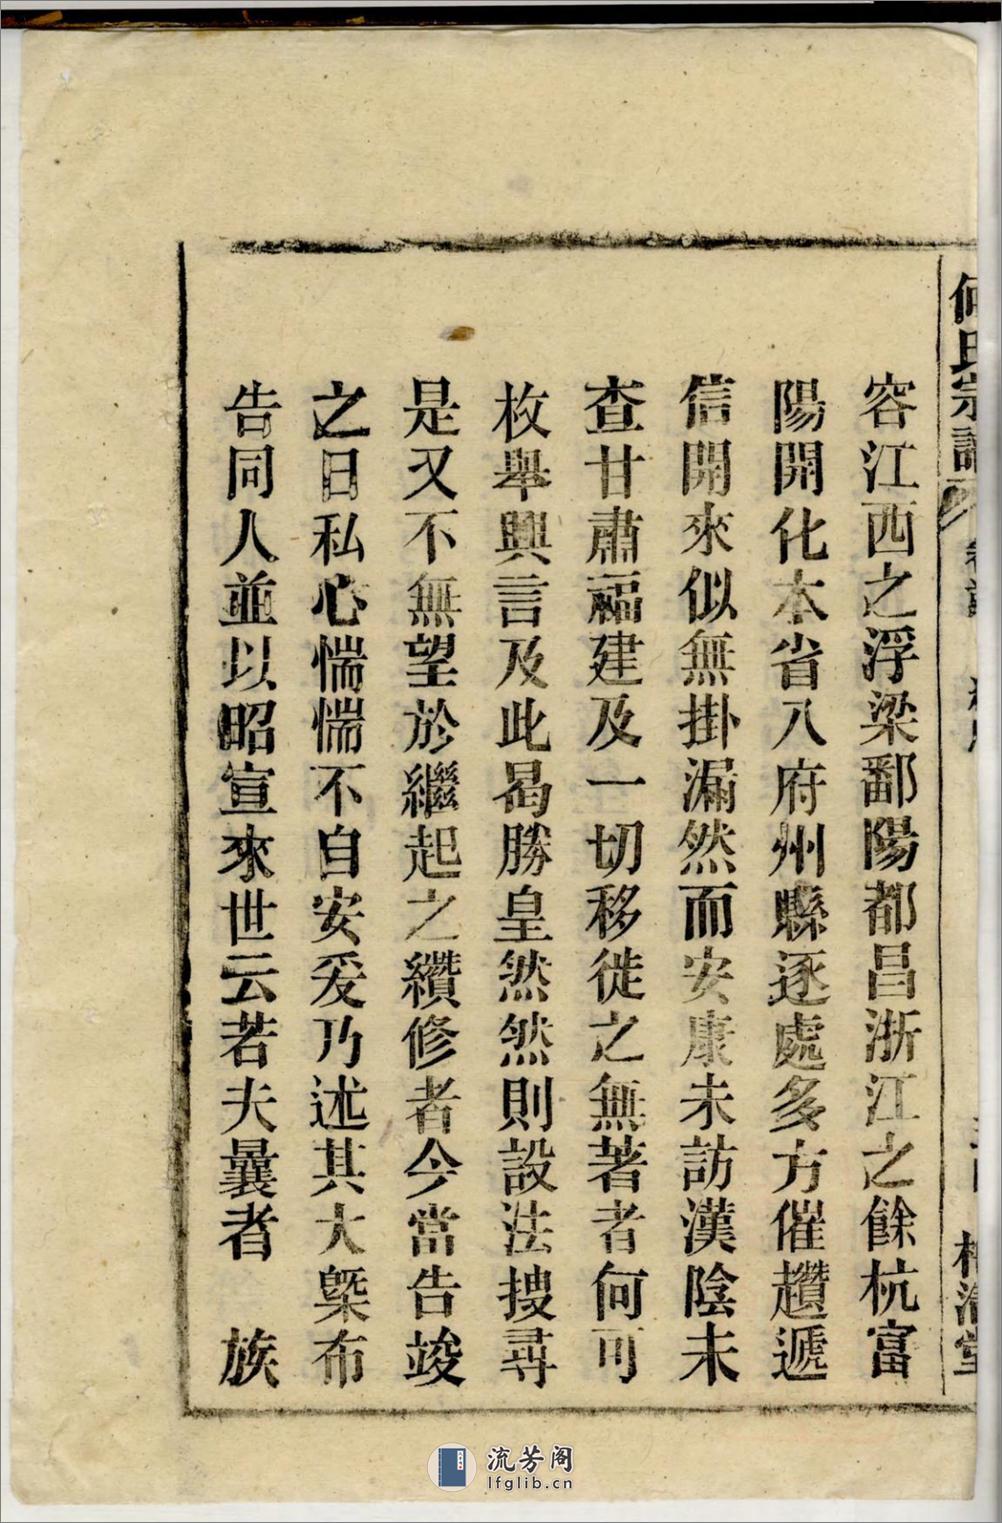 何氏宗譜
容江西之浮梁鄱陽都昌浙江之餘杭富
陽開化本省八府州縣逐處多方催趲遞
信開來似無掛漏然而安康未訪漢陰未
查甘肅福建及一切移徙之無著者何可
枚舉興言及此曷勝皇然然則設法搜尋
是又不無望於繼起之纘修者今當告竣
之日私心惴惴不自安爰乃述其大槩布
告同人並以昭宣來世云若夫曩者 族
流芳阁
lfglib.cn